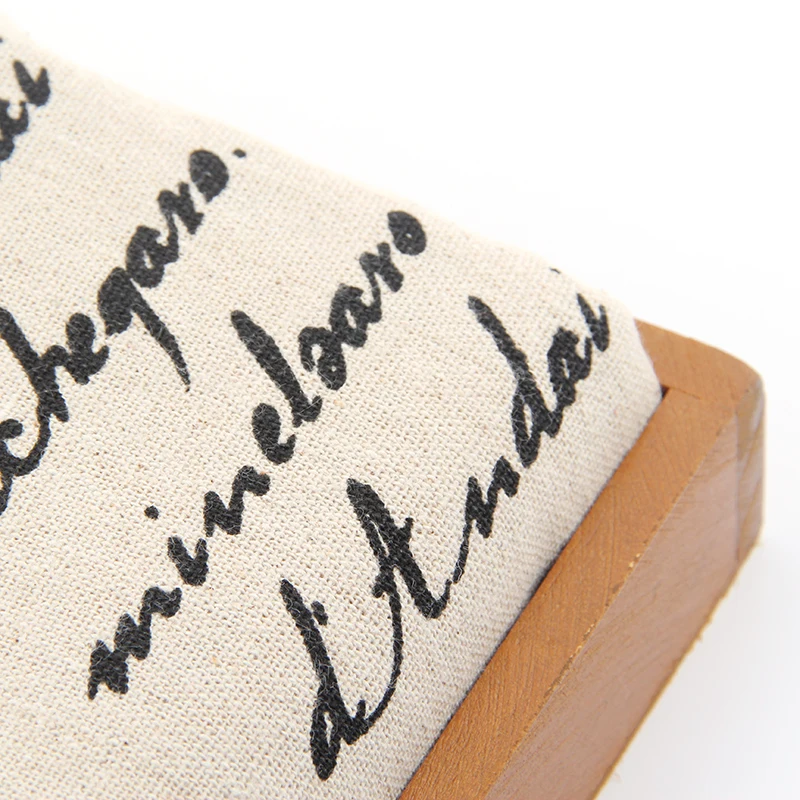 chegaro.
mineloaro
d'Andai